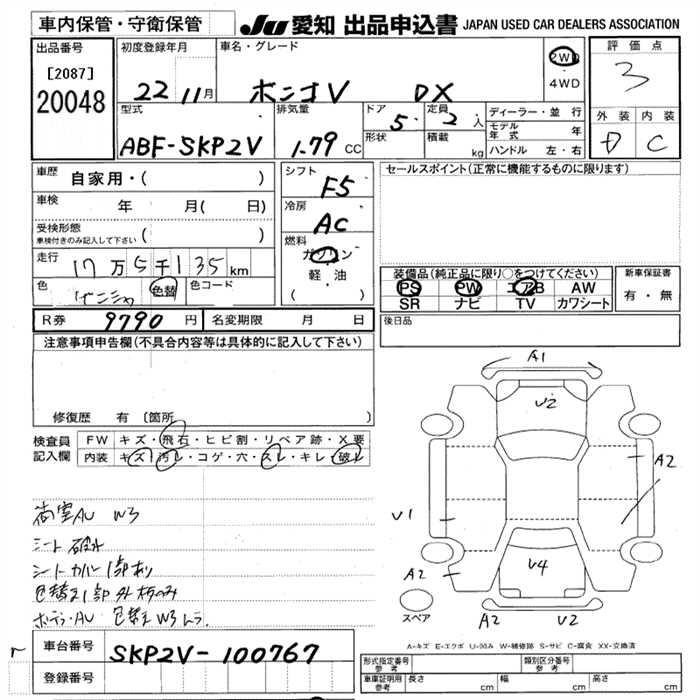 車内保管・守衛保管
JU 愛知 出品申込書 JAPAN USED CAR DEALERS ASSOCIATION
出品番号
[2087]
20048
初度登録年月
22 11月
車名・グレード
ボンゴV DX
2WD
4WD
評価点
3
型式
ABF-SKP2V
排気量
1.79 CC
ドア
5
形状
定員
2 人
積載
kg
ディーラー・並行
モデル年式 年
ハンドル 左・右
外装 内装
D C
車歴
自家用・( )
車検
年 月( 日)
受検形態
車検付きのみ記入して下さい ( )
走行
17万5千135km
色
色替
色コード
シフト
F5
冷房
AC
燃料
ガソリン
軽・油
( )
セールスポイント(正常に機能するものに限ります)
装備品(純正品に限り○をつけてください)
PS PW エアB AW
SR ナビ TV カワシート
新車保証書
有・無
R券 9790 円 名変期限 月 日
後日品
注意事項申告欄(不具合内容等は具体的に記入して下さい)
修復歴 有〔箇所
検査員記入欄
FW キズ・飛石・ヒビ割・リペア跡・X要
内装 キズ・汚レ・コゲ・穴・スレ・キレ・破レ
荷室AU W3
シート破れ
シートカバー1部あり
色替え1部外板のみ
ボデーAU 色替えW3ムラ
A1
V2
A2
V1
V4
A2
A2 V2
スペア
A-キズ E-エクボ U-凹み W-補修跡 S-サビ C-腐食 XX-交換済
車台番号 SKP2V-100767
登録番号
形式指定番号 参考
類別区分番号 参考
車庫証明用 参考
長さ cm 幅 cm 高さ cm